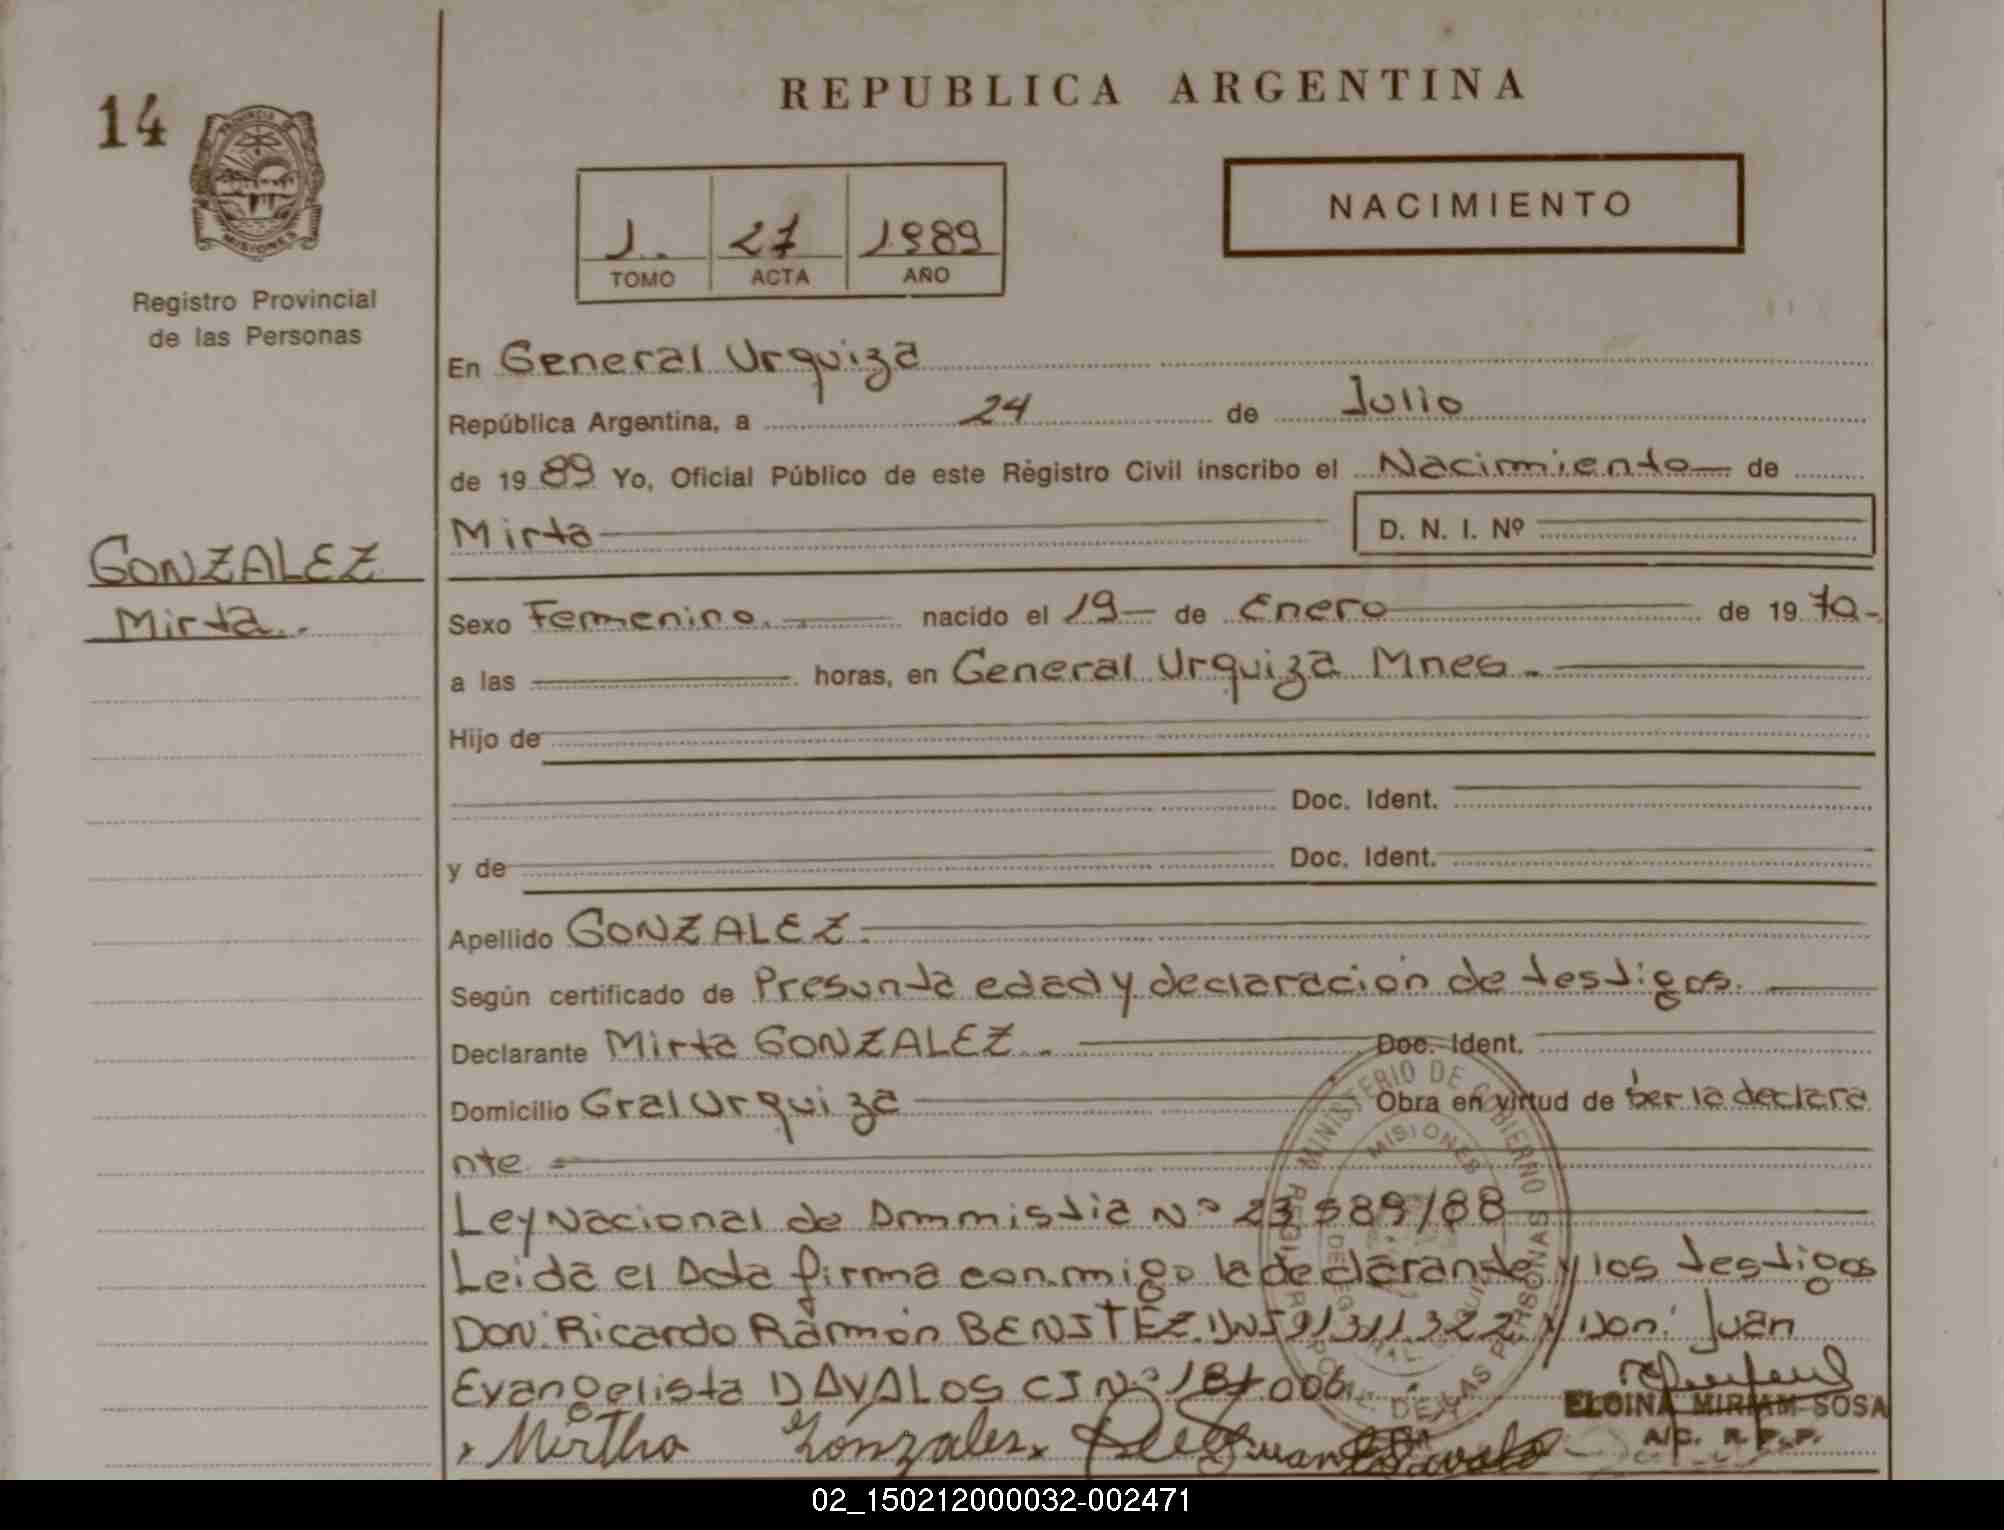 REPUBLICA ARGENTINA
14
PROVINCIA DE
MISIONES
Registro Provincial
de las Personas
1.. 27 1989
TOMO ACTA AÑO
NACIMIENTO
En General Urquiza
República Argentina, a 24 de Julio
de 19 89 Yo, Oficial Público de este Registro Civil inscribo el Nacimiento de
Mirta D. N. I. Nº
GONZALEZ
Mirta..
Sexo Femenino. nacido el 19 de Enero de 19 70-
a las horas, en General Urquiza Mnes.
Hijo de
Doc. Ident.
y de Doc. Ident.
Apellido GONZALEZ.
Según certificado de Presunta edad y declaración de testigos.
Declarante Mirta GONZALEZ. Doc. Ident.
Domicilio Gral Urquiza Obra en virtud de ser la declara
nte
Ley Nacional de Ammistia Nº 23589/88
Leida el Acta firma conmigo la declarante y los testigos
Don: Ricardo Ramón BENITEZ y Don: Juan
Evangelista DAVALOS CI Nº
MINISTERIO DE GOBIERNO
MISIONES
DE LAS PERSONAS
Mirtha Gonzales
ELOINA MIRIAM SOSA
A/C. R. P. P.
02_150212000032-002471